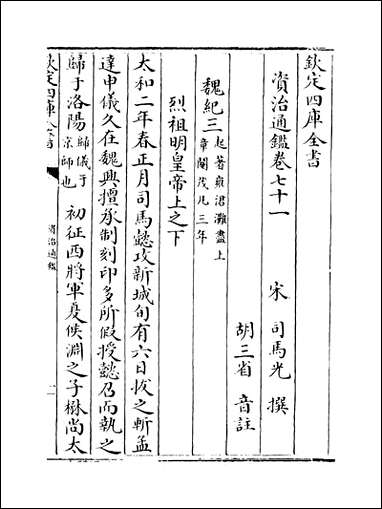 欽定四庫全書
資治通鑑卷七十一
宋 司馬光 撰
胡三省 音註
魏紀三 起著雍涒灘盡上章閹茂凡三年
烈祖明皇帝上之下
太和二年春正月司馬懿攻新城旬有六日拔之斬孟
達申儀久在魏興擅承制刻印多所假授懿召而執之
歸于洛陽 歸儀于京師也 初征西將軍夏侯淵之子楙尚太
資治通鑑